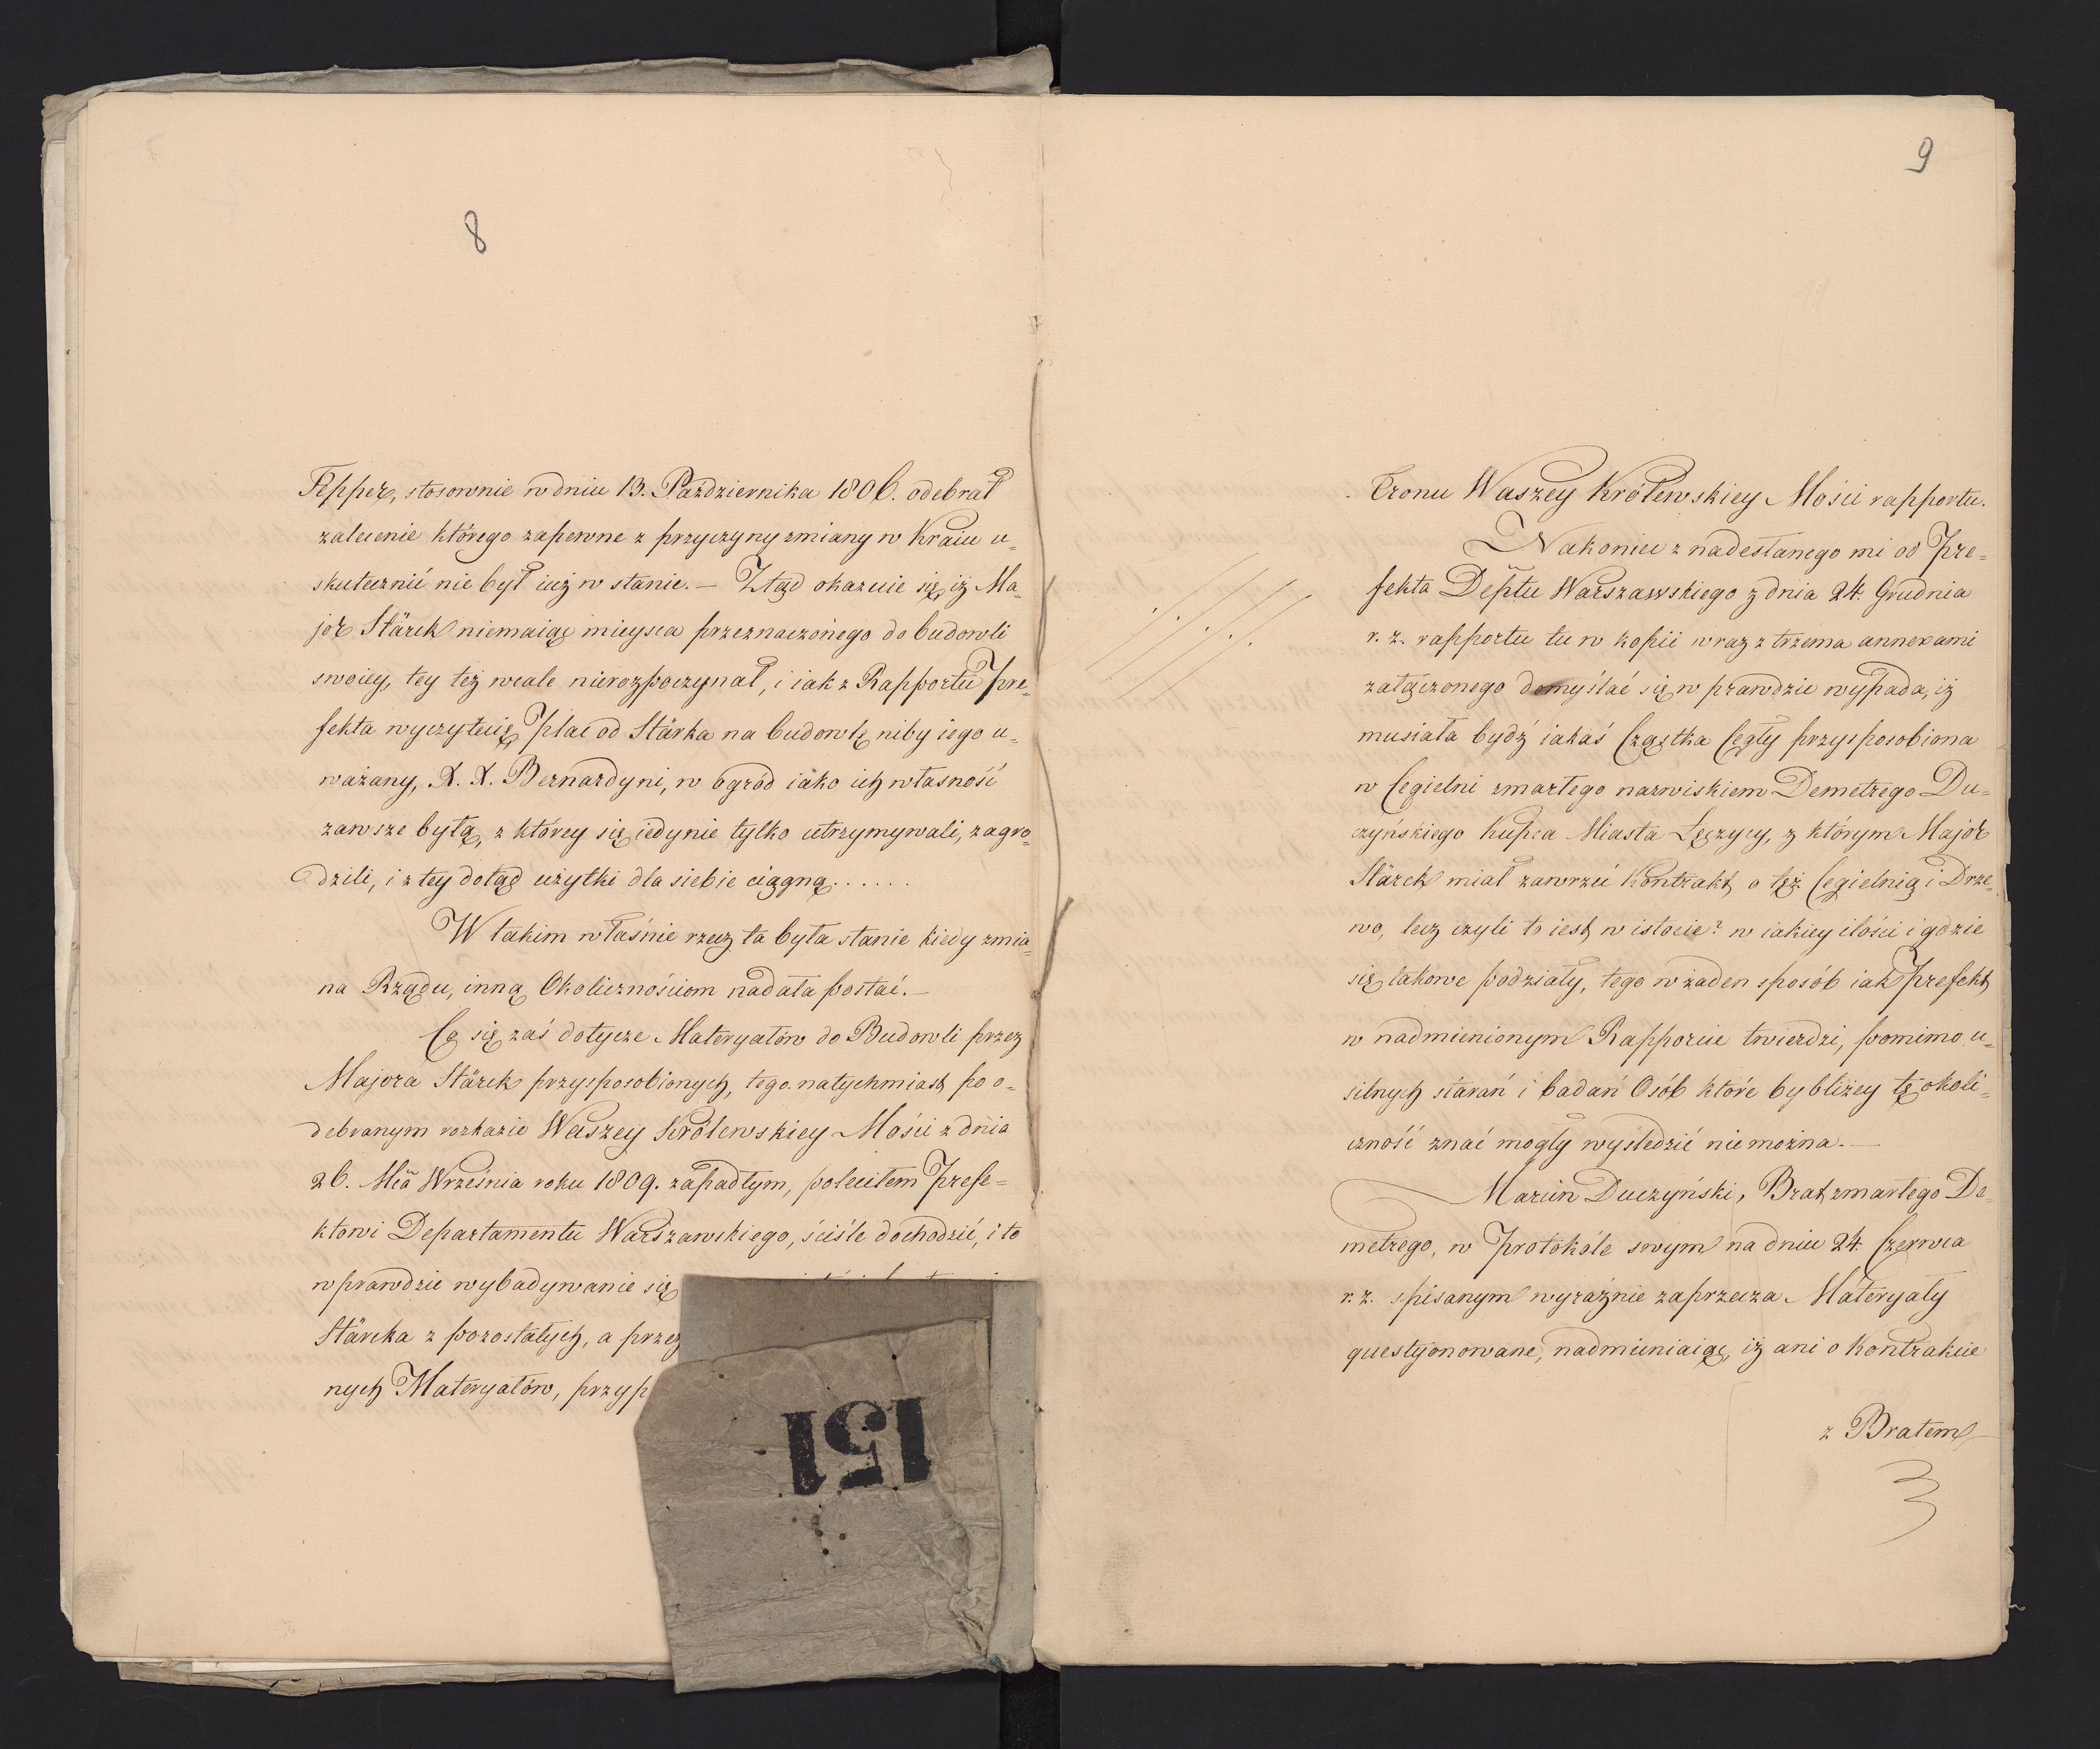 8
Tepper, stosownie w dniu 13. Października 1806. odebrał
zalecenie którego zapewne z przyczyny zmiany w Kraiu u=
skutecznić nie był iuż w stanie. — Ztąd okazuie się iż Ma=
jor Stärck niemaiąc mieysca przeznaczonego do budowli
swoiey, tey też wcale nierozpoczynał, i iak z Rapportu Pre=
fekta wyczytuię Plac od Stärka na budowlę niby iego u=
ważany, X. X. Bernardyni, w ogród iako ich własność
zawsze byłą, z którey się iedynie tylko utrzymywali, zagro=
dzili, i z tey dotąd użytki dla siebie ciągną......
W takim właśnie rzecz ta była stanie kiedy zmia=
na Rządu, inną Okolicznościom nadała postać. —
Co się zaś dotycze Materyałów do Budowli przez
Majora Stärck przysposobionych, tego natychmiast po o=
debranym rozkazie Waszey Królewskiey Mości z dnia
26. Mca Września roku 1809. zapadłym, poleciłem Prefe=
ktowi Departamentu Warszawskiego, ściśle dochodzić, i to
w prawdzie wybadywanie się
Stärcka z pozostałych, a przez
nych Materyałów, przysp
151
9
Tronu Waszey Królewskiey Mości rapportu.
Nakoniec z nadesłanego mi od Pre=
fekta Deptu Warszawskiego z dnia 24. Grudnia
r. z. rapportu tu w kopii wraz z trzema annexami
załączonego domyślać się w prawdzie wypada, iż
musiała bydź iakaś Cząstka Cegły przysposobiona
w Cegielni zmarłego nazwiskiem Demetrego Du=
czyńskiego Kupca Miasta Łęczycy, z którym Major
Stärck miał zawrzeć Kontrakt o też Cegielnią i Drze=
wo, lecz czyli to iest w istocie? w iakiey ilości i gdzie
się takowe podziały, tego w żaden sposób iak Prefekt
w nadmienionym Rapporcie twierdzi, pomimo u=
silnych starań i badań Osób które by bliżey tę okoli=
czność znać mogły wyśledzić nie można. —
Marcin Duczyński, Brat zmarłego De=
metrego, w Protokóle swym na dniu 24. Czerwca
r. z. spisanym wyraźnie zaprzecza Materyały
questyonowane, nadmieniaiąc, iż ani o Kontrakcie
z Bratem